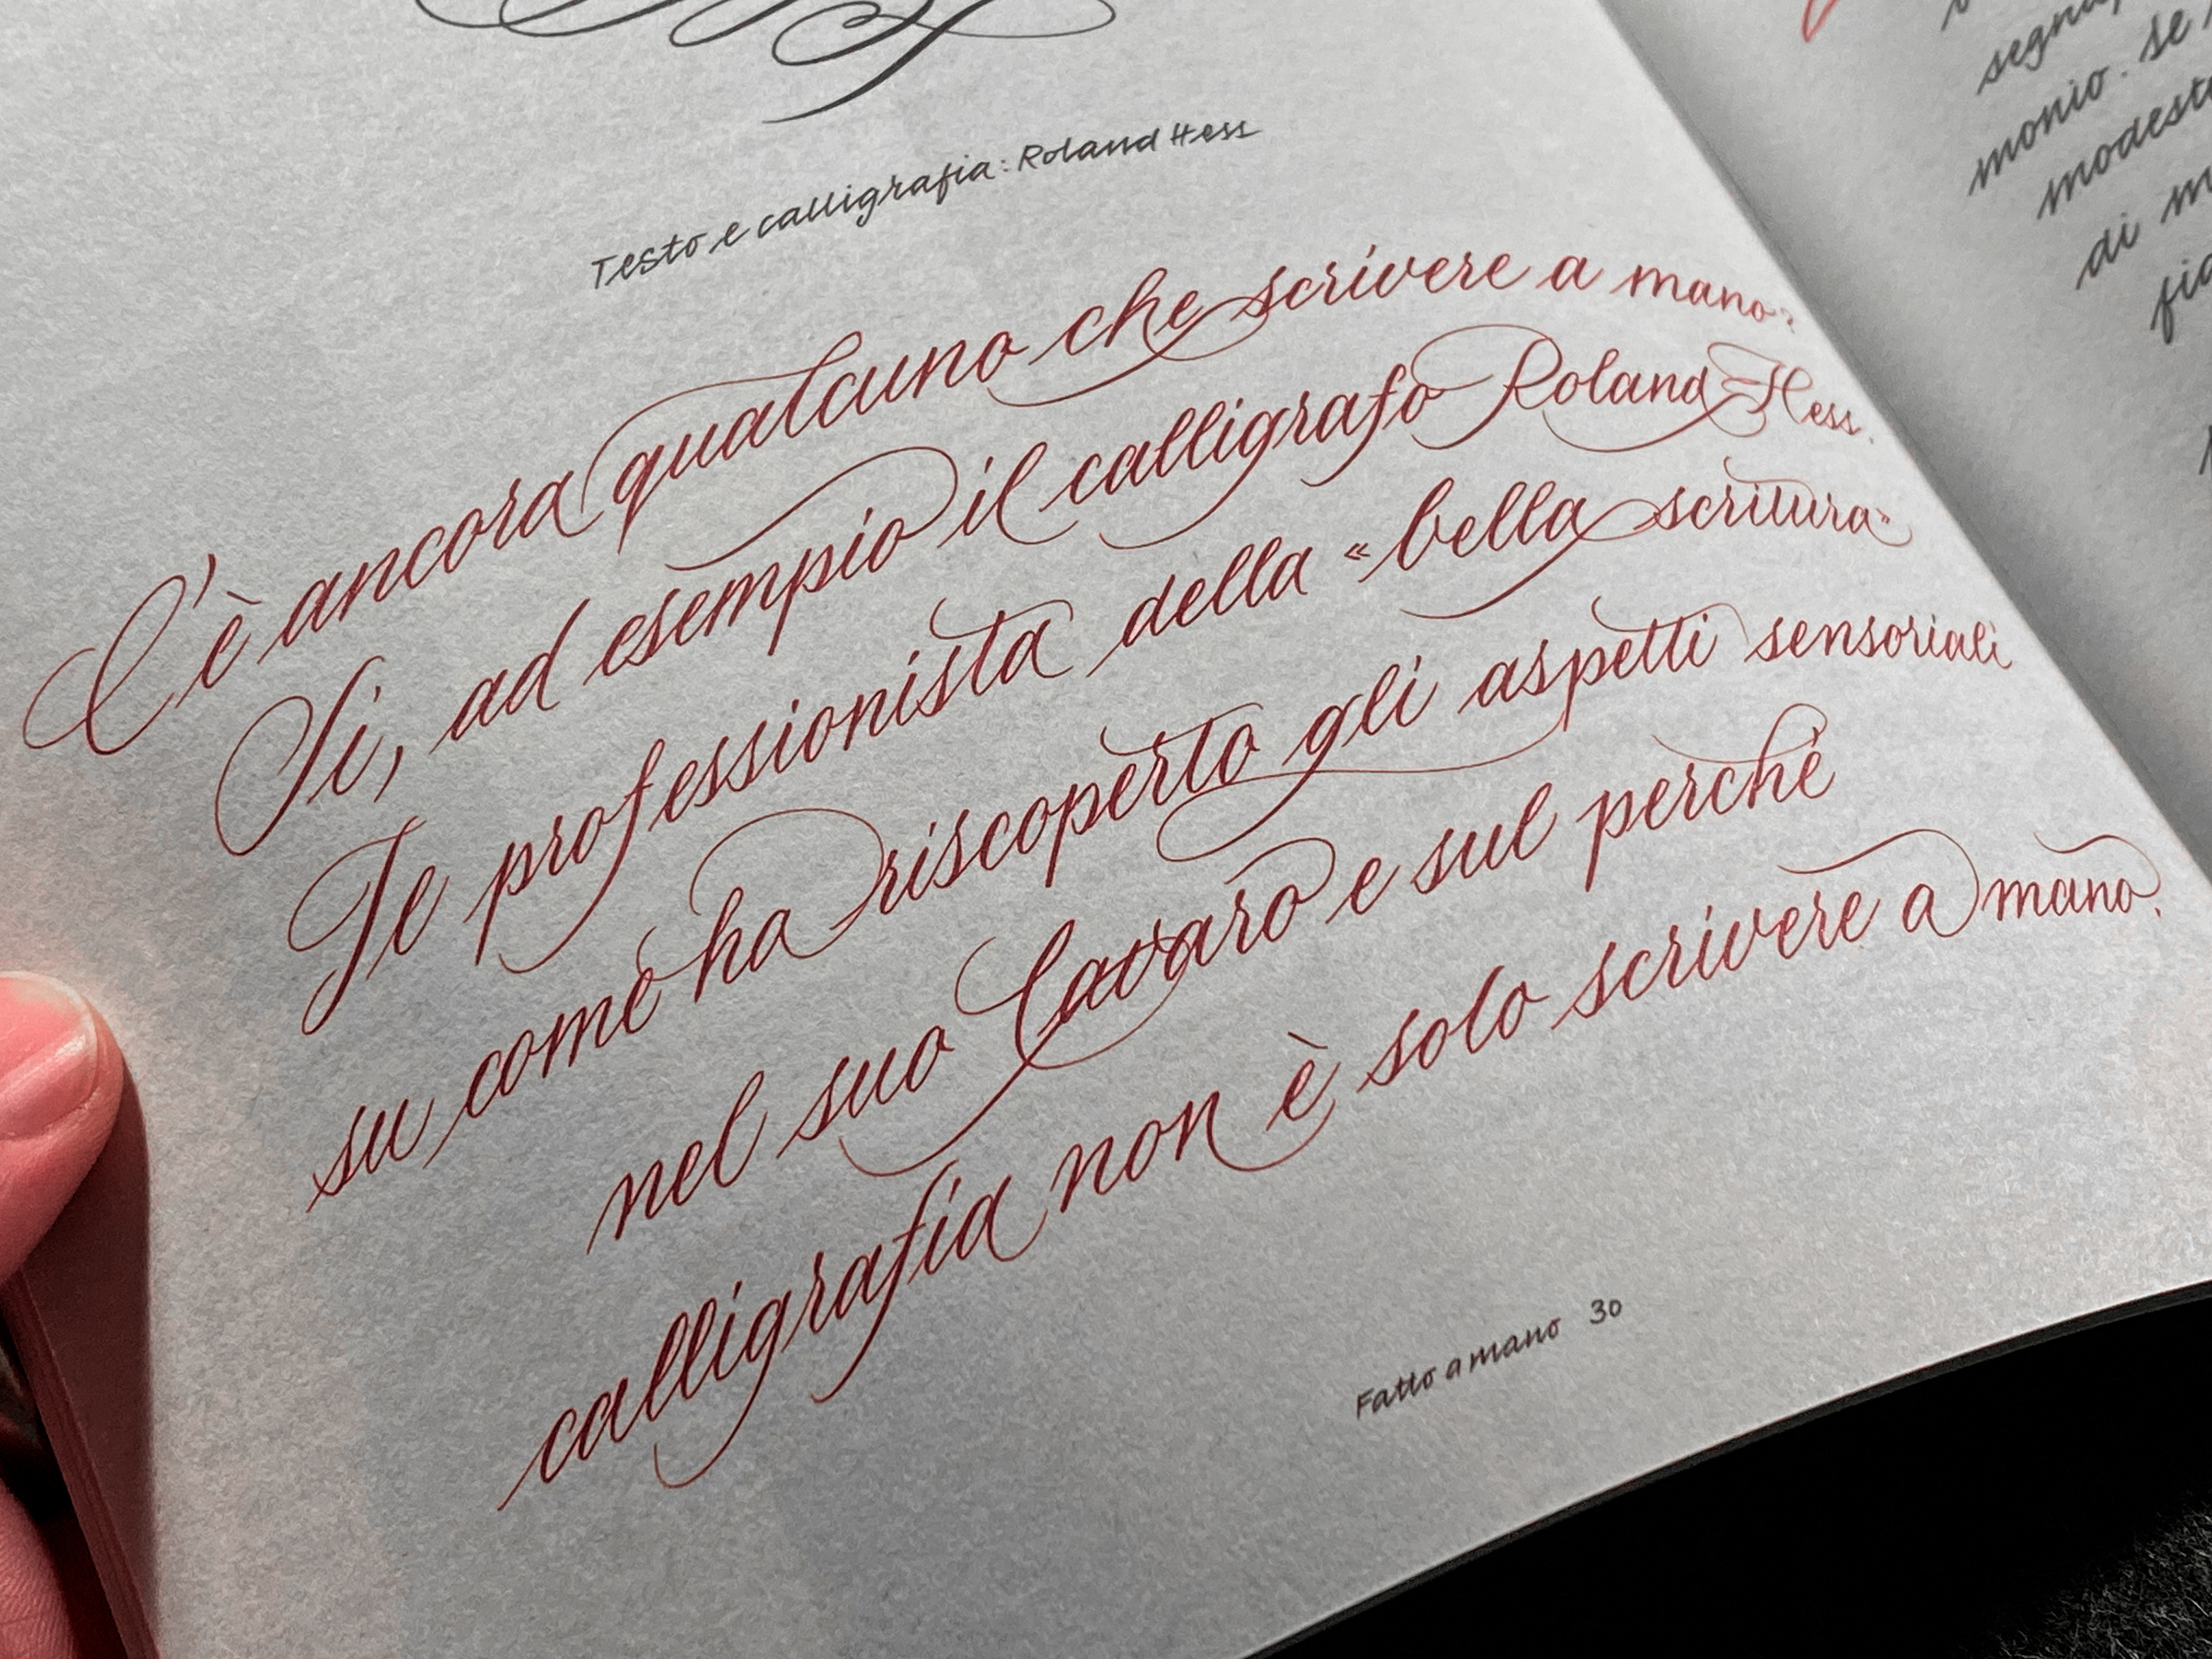 Testo e calligrafia: Roland Hess
C'è ancora qualcuno che scrivere a mano?
Si, ad esempio il calligrafo Roland Hess.
Te professionista della «bella scrittura»
su come ha riscoperto gli aspetti sensoriali
nel suo Lavaro e sul perché
calligrafia non è solo scrivere a mano.
Fatto a mano 30
monio. se
di